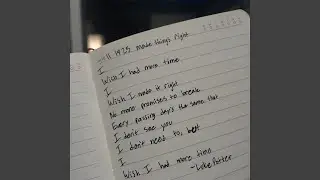 11 14 23 made things right
I
Wish I had more time
I
Wish I made it right
No more promises to break
Every passing day's the same that
I don't see you
I don't need to, but
I
Wish I had more time
- Luke Potter